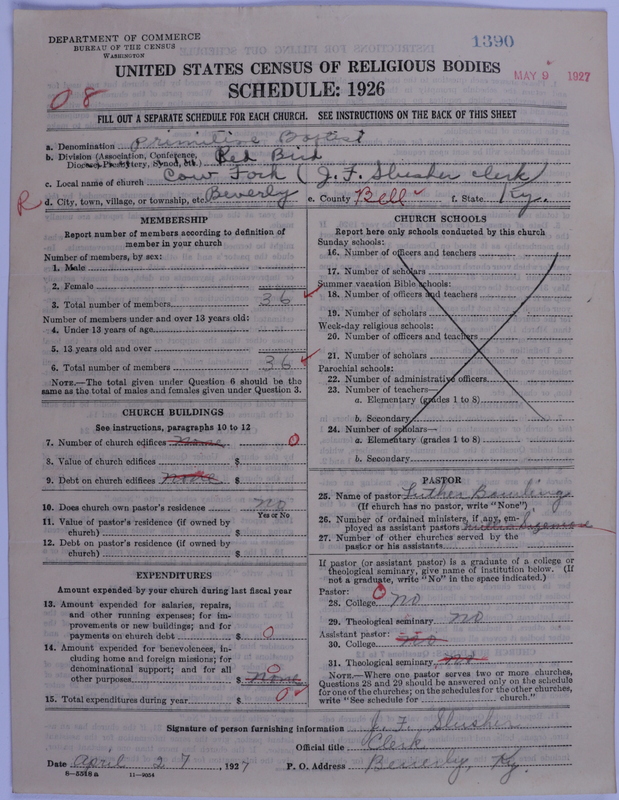 DEPARTMENT OF COMMERCE
BUREAU OF THE CENSUS
WASHINGTON
1390
UNITED STATES CENSUS OF RELIGIOUS BODIES
MAY 9 1927
SCHEDULE: 1926
08
FILL OUT A SEPARATE SCHEDULE FOR EACH CHURCH. SEE INSTRUCTIONS ON THE BACK OF THIS SHEET
a. Denomination Primitive Baptist
b. Division (Association, Conference, Diocese, Presbytery, Synod, etc.) Red Bird
c. Local name of church Cow Fork (J. F. Slusher Clerk)
R d. City, town, village, or township, etc. Beverly e. County Bell f. State Ky.
MEMBERSHIP
Report number of members according to definition of
member in your church
Number of members, by sex:
1. Male
2. Female
3. Total number of members 36
Number of members under and over 13 years old:
4. Under 13 years of age
5. 13 years old and over
6. Total number of members 36
NOTE.—The total given under Question 6 should be the
same as the total of males and females given under Question 3.
CHURCH BUILDINGS
See instructions, paragraphs 10 to 12
7. Number of church edifices None 0
8. Value of church edifices $
9. Debt on church edifices None $
10. Does church own pastor's residence No
Yes or No
11. Value of pastor's residence (if owned by
church) $
12. Debt on pastor's residence (if owned by
church) $
EXPENDITURES
Amount expended by your church during last fiscal year
13. Amount expended for salaries, repairs,
and other running expenses; for im-
provements or new buildings; and for
payments on church debt $ 0
14. Amount expended for benevolences, in-
cluding home and foreign missions; for
denominational support; and for all 0
other purposes $ None
15. Total expenditures during year $ 0
CHURCH SCHOOLS
Report here only schools conducted by this church
Sunday schools:
16. Number of officers and teachers
17. Number of scholars
Summer vacation Bible schools:
18. Number of officers and teachers
19. Number of scholars
Week-day religious schools:
20. Number of officers and teachers
21. Number of scholars
Parochial schools:
22. Number of administrative officers
23. Number of teachers—
a. Elementary (grades 1 to 8)
b. Secondary
24. Number of scholars—
a. Elementary (grades 1 to 8)
b. Secondary
PASTOR
25. Name of pastor Luther Bowling
(If church has no pastor, write "None")
26. Number of ordained ministers, if any, em-
ployed as assistant pastors
27. Number of other churches served by the
pastor or his assistants
If pastor (or assistant pastor) is a graduate of a college or
theological seminary, give name of institution below. (If
not a graduate, write "No" in the space indicated.)
Pastor: 0
28. College No
29. Theological seminary No
Assistant pastor:
30. College No
31. Theological seminary No
NOTE.—Where one pastor serves two or more churches,
Questions 28 and 29 should be answered only on the schedule
for one of the churches; on the schedules for the other churches,
write "See schedule for church."
Signature of person furnishing information J. F. Slusher
Official title Clerk
Date April 27, 1927 P. O. Address Beverly, Ky.
8-5518 a 11-9054